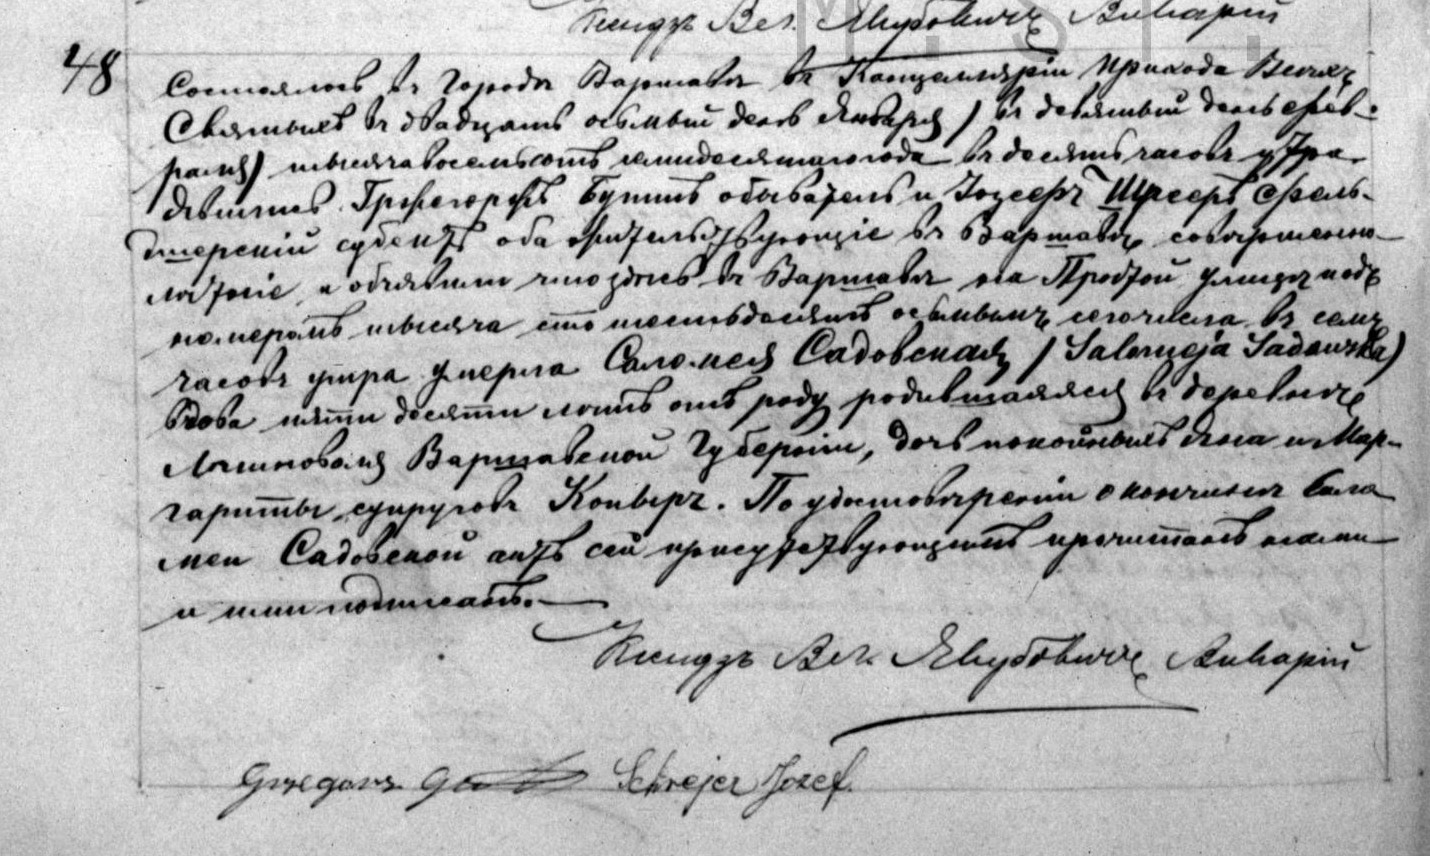 Ксендзъ Вел. Якубовичъ Викарій
48
Состоялось въ Городѣ Варшавѣ въ Канцеляріи Прихода Всѣхъ
Святыхъ въ двадцать осьмый день Января / въ девятый день Фев-
раля) тысяча восемьсотъ семидесятаго года въ десять часовъ утра.
Явились Гржегоржъ обыватель и Іозефъ Шрееръ Фель-
дшерскій субектъ оба жительствующіе въ Варшавѣ совершенно-
лѣтніе и объявили что здѣсь въ Варшавѣ на Простой улицѣ подъ
номеромъ тысяча сто шестьдесятъ осьмымъ сего числа въ семь
часовъ утра умерла Саломея Садовская / Salomeja Sadowska)
вдова пяти десяти лѣтъ отъ роду родившаяяся въ деревнѣ
Варшавской Губерніи, дочь покойныхъ Яна и Мар-
гариты супруговъ. По удостовѣреніи о кончинѣ Сало
меи Садовской актъ сей присутствующимъ прочитанъ нами
и ими подписанъ.
Ксендзъ Вел. Якубовичъ Викарій
Grzegorz Schrejer Jozef.